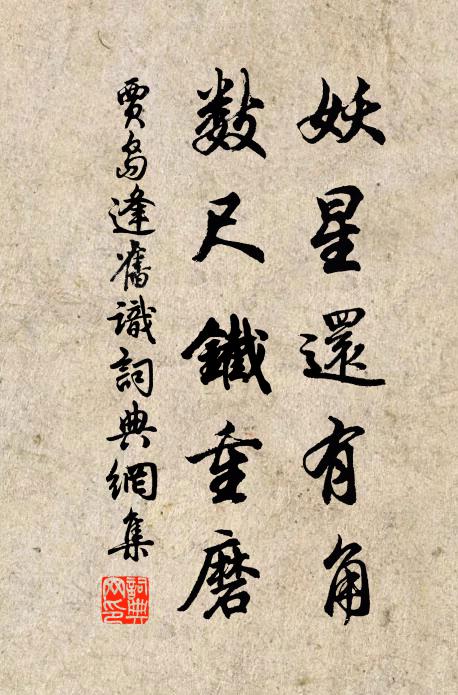 妖星還有角
數尺鐵重磨
賈島逢舊識詞典網集
詞典网印